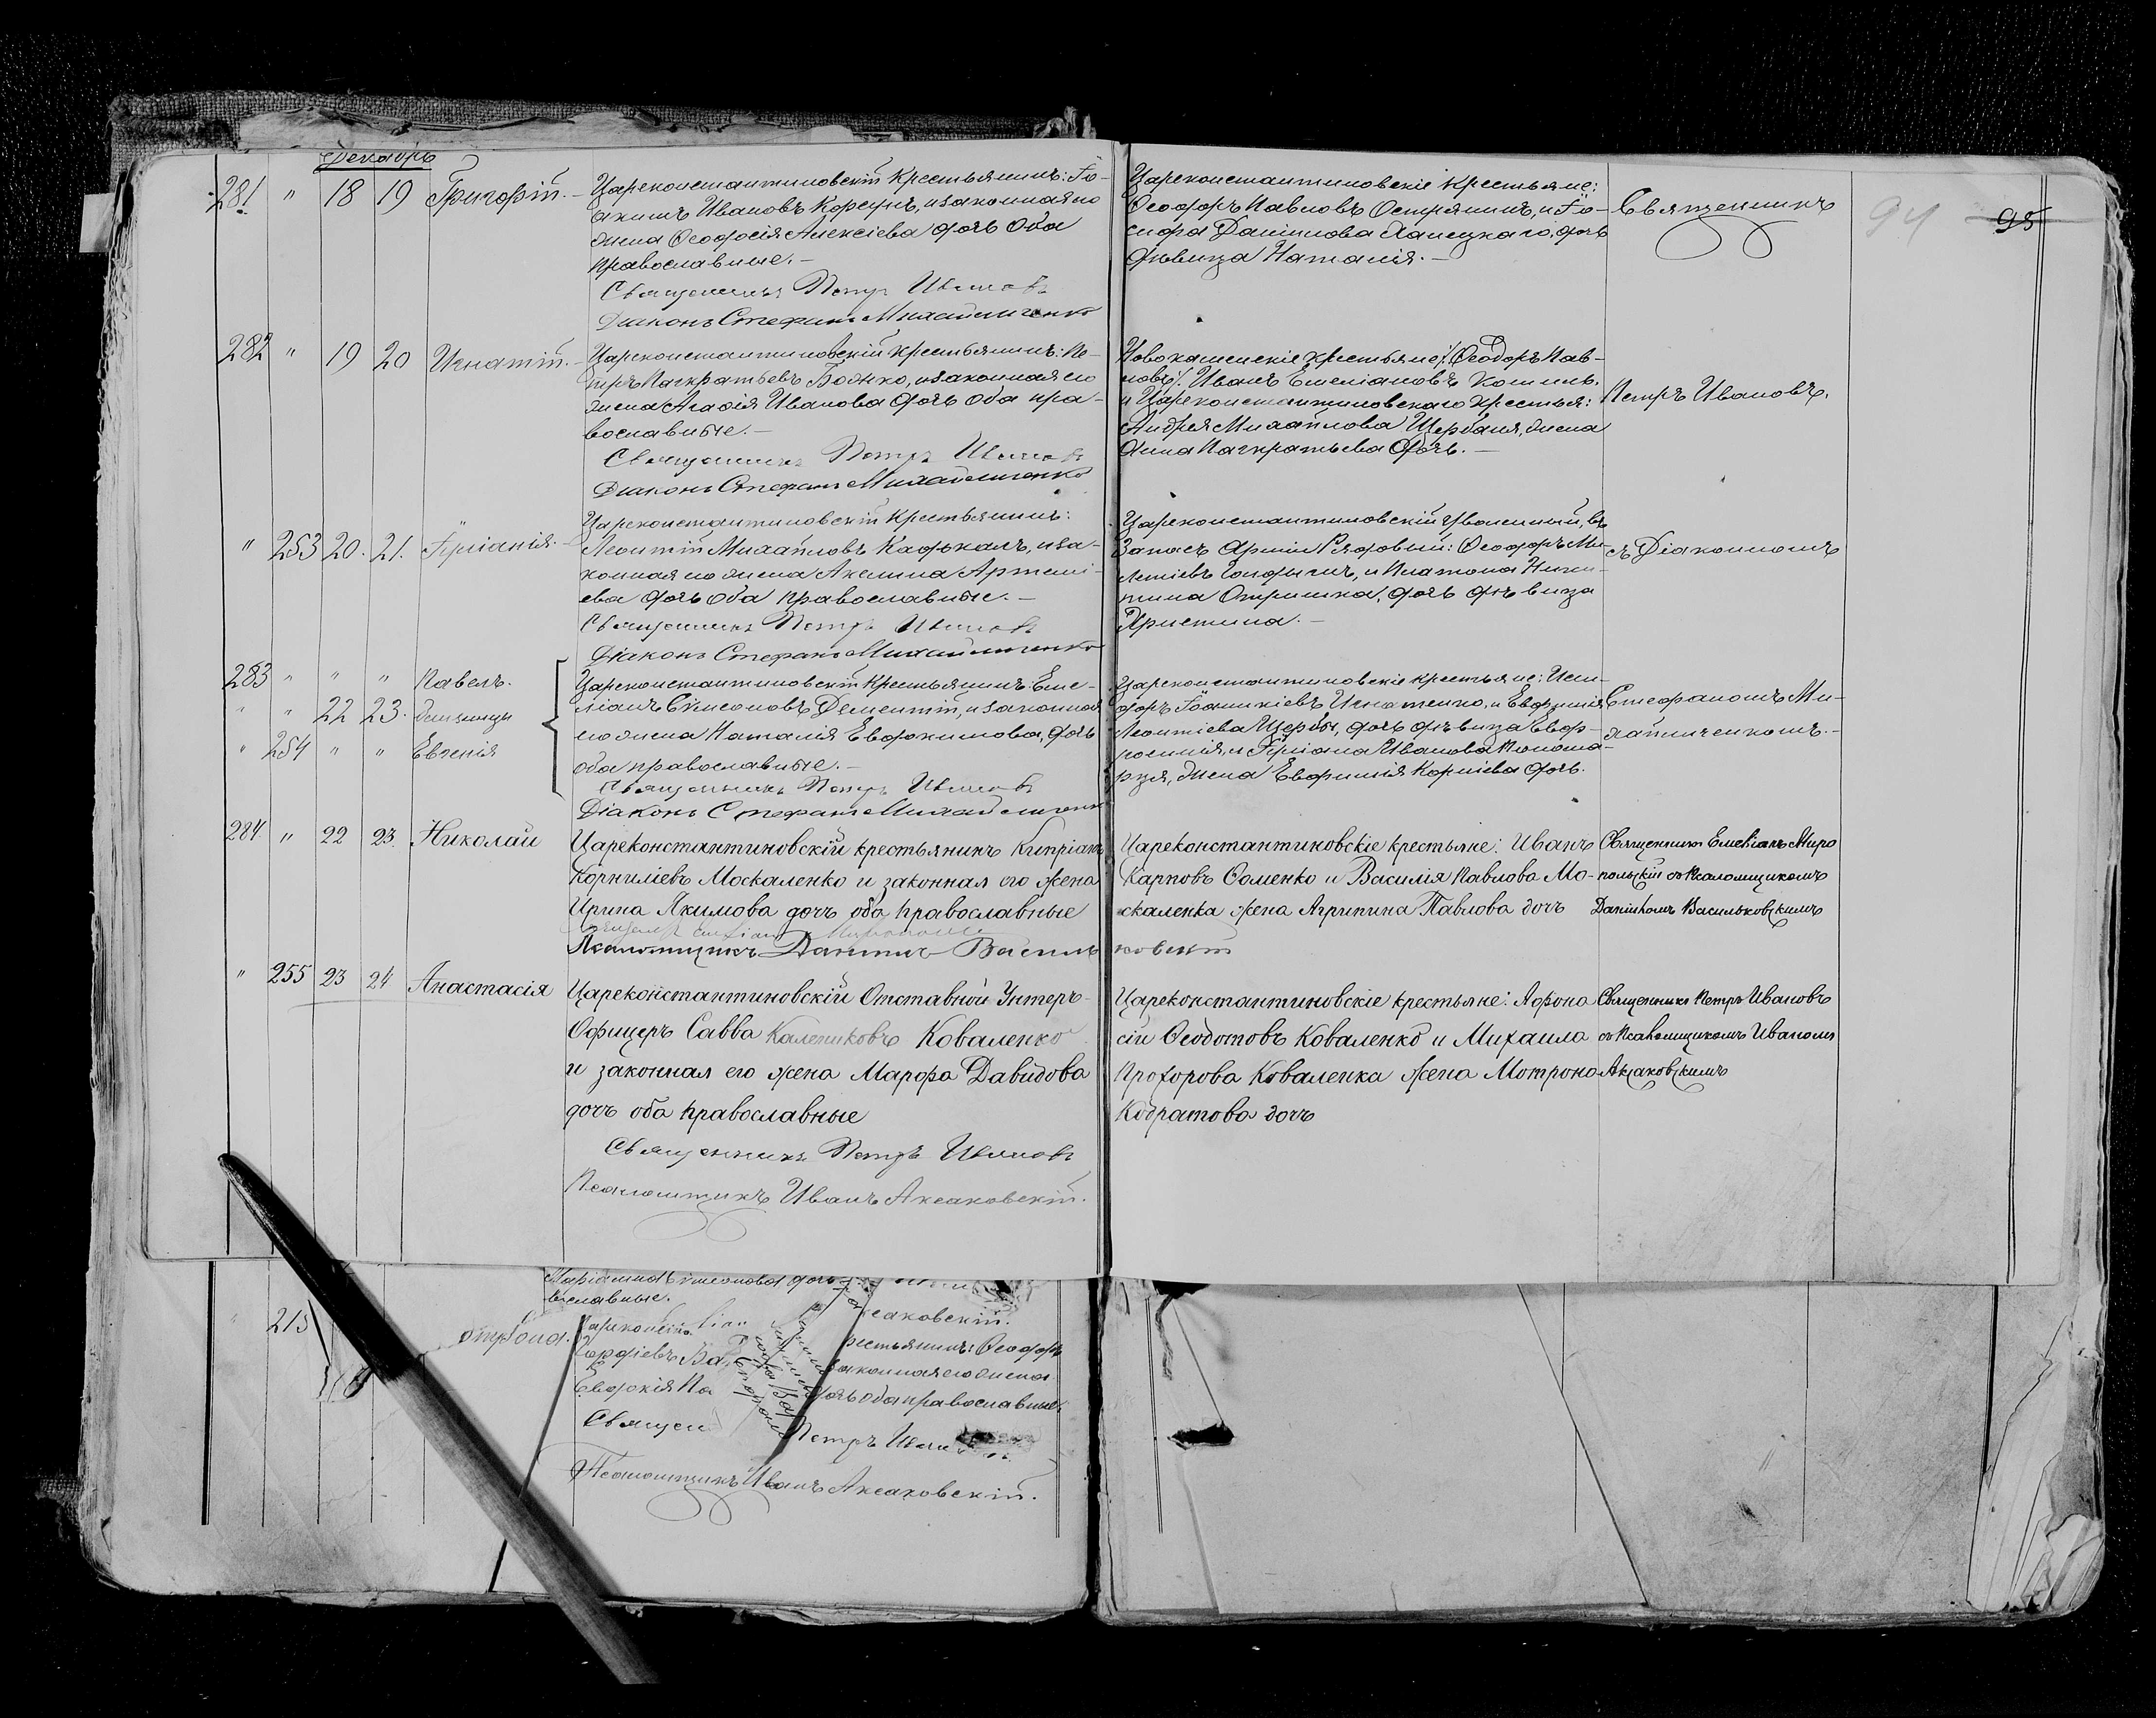 Декабрь
281 " 18 19 Григорій. Цареконстантиновскій крестьянинъ: Іо-
акимъ Ивановъ Корсунъ, и законная его
жена Ѳеодосія Алексіева дочь оба
православные.
Священникъ Петръ Ивановъ
Діаконъ Стефанъ Михайличенко
Цареконстантиновскіе крестьяне:
Ѳеодоръ Павловъ Острянинъ, и Іо-
сифа Даніилова дочь
дѣвица Наталія.
Священникъ
94 95
282 " 19 20 Игнатій. Цареконстантиновскій крестьянинъ: Пе-
тръ Панкратьевъ Бойко, и законная его
жена Агафія Иванова дочь оба пра-
вославные.
Священникъ Петръ Ивановъ
Діаконъ Стефанъ Михайличенко
Новокаменскіе крестьяне: /Ѳеодоръ Пав-
ловъ/. Иванъ Емеліановъ
и Цареконстантиновскаго крестья:
Андрея Михайлова Щербаня, жена
Анна Панкратьева дочь.
Петръ Ивановъ,
" 253 20. 21. Іуліанія. Цареконстантиновскій крестьянинъ:
Леонтій Михайловъ и за-
конная его жена Акелина Артемі-
ева дочь оба православные.
Священникъ Петръ Ивановъ
Діаконъ Стефанъ Михайличенко
Цареконстантиновскій уволенный, въ
запасъ Арміи Рядовый: Ѳеодоръ Ме-
летіевъ и Платона Ники-
тина дочь дѣвица
Христина.
съ Діакономъ
283 " " " Павелъ.
" " 22 23. близнецы
" 254 " " Евгенія
Цареконстантиновскій крестьянинъ: Еме-
ліанъ Сѵмеоновъ Дементій, и законная
его жена Наталія Евдокимова, дочь
оба православные.
Священникъ Петръ Ивановъ
Діаконъ Стефанъ Михайличенко
Цареконстантиновскіе крестьяне: Иси-
доръ Іоанникіевъ Игнатенко, и Евфимія
Леонтіева Щербы, дочь дѣвица Евфр-
росинія, и Іуліана Иванова Понома-
ря, жена Евфимія Корніева дочь.
Стефаномъ Ми-
хайличенкомъ.
284 " 22 23. Николай Цареконстантиновскій крестьянинъ Кипріанъ
Корниліевъ Москаленко и законная его жена
Ирина Якимова дочь оба православные
Псаломщикъ Даніилъ Василь ковскій
Цареконстантиновскіе крестьяне: Иванъ
Карповъ Ѳоменко и Василія Павлова Мо-
скаленка жена Агрипина Павлова дочь
Священникъ Емеліанъ Миро
польскій съ Псаломщикомъ
Даніиломъ Васильковскимъ
" 255 23 24 Анастасія Цареконстантиновскій Отставной Унтеръ-
Офицеръ Савва Калениковъ Коваленко
и законная его жена Марфа Давидова
дочь оба православные
Священникъ Петръ Ивановъ
Псаломщикъ Иванъ Аксаковскій.
Цареконстантиновскіе крестьяне: Афона
сій Ѳеодотовъ Коваленко и Михаила
Прохорова Коваленка жена Мотрона
Кодратова дочь
Священникъ Петръ Ивановъ
съ Псаломщикомъ Иваномъ
Аксаковскимъ
вославные.
саковскій.
215
рестьянинъ: Ѳеодоръ
Гордіевъ Ва законная его жена
Евдокія Па дочь оба православные
Священ Петръ Ивановъ
Псаломщикъ Иванъ Аксаковскій.